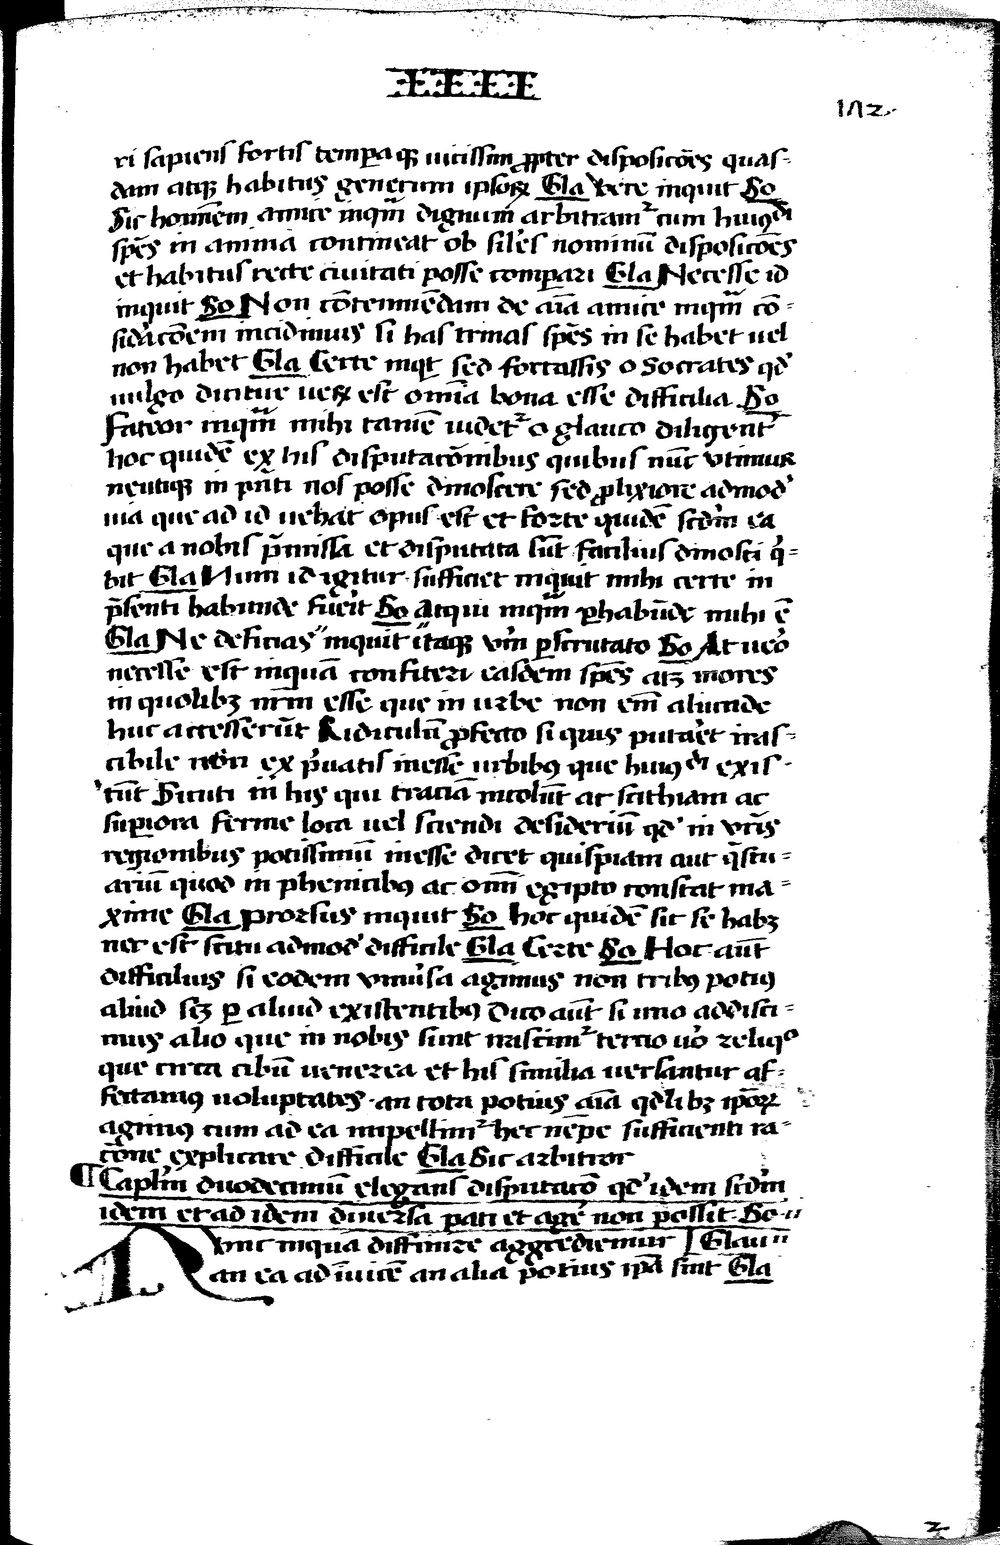 142
ri sapiens fortis temperaqȝ uicissim ꝓpter disposicōēs quas-
dam atqȝ habitus generum ipsoꝝ Gla Vere inquit So
Sic hominem amice inqm̄ dignum arbitramur cum huiꝯdi
spēs in anima contineat ob siles nominū disposicōēs
et habitus recte ciuitati posse compari Gla Necesse id
inquit So Non cōtemnēdam de aīa amice inqm̄ cō-
sidacōem incidimus si has trinas spēs in se habet uel
non habet Gla Certe inqt sed fortassis o Socrates qd'
uulgo dicitur ueꝝ est omīa bona esse difficilia So
Fateor inqm̄ mihi tamē uidet o glauco diligent
hoc quidē ex his disputacōnibus quibus nūc vtimur
neutiqȝ in pn̄ti nos posse dinoscere sed ꝓlixiore admod'
uia que ad id uehat opus est et forte quidē scdm ea
que a nobis p̄missa et disputata sūt facilius dinosci q̄-
bit Gla Num id igitur sufficiet inquit mihi certe in
p̄senti habunde fuerit So Atqui inqm̄ ꝑhabūde mihi ē
Gla Ne deficias inquit itaqȝ vm̄ ꝑscrutato So At uero
necesse est inquā confiteri easdem spēs atqȝ mores
in quolibȝ nrm̄ esse que in urbe non em̄ aliunde
huc accesserūt Ridiculū ꝓfecto si quis putaret iras-
cibile non ex p̄uatis inesse urbibꝯ que huiꝯdi exis-
tūt Sicuti in his qui traciā incolūt ac scithiam ac
superiora ferme loca uel sciendi desideriū qd' in vris
regionibus potissimū inesse dicet quispiam aut q̄stu-
ariū quod in phenicibꝯ ac omī egipto constat ma-
xime Gla prorsus inquit So hoc quidē sic se habȝ
nec est scitu admod' difficile Gla Certe So Hoc aūt
difficilius si eodem vniuersa agimus non tribꝯ potiꝯ
aliud scȝ ꝑ aliud existentibꝯ Dico aūt si uno addisci-
mus alio que in nobis sunt irascimur tertio uō reliqo
que circa cibū uenerea et his similia uersantur af-
fectamꝯ uoluptates an tota potius aīa qdlibȝ ipōꝝ
agimꝯ cum ad ea impellimur hec nēpe sufficienti ra-
cōne explicare difficile Gla Sic arbitror
¶ Caplm̄ duodecimū elegans disputacō qd' idem scdm
idem et ad idem diuersa pati et agē non possit So
Nunc inquā diffinire aggrediemur Glau
an ea ad īuicē an alia potius ipā sint Gla
2